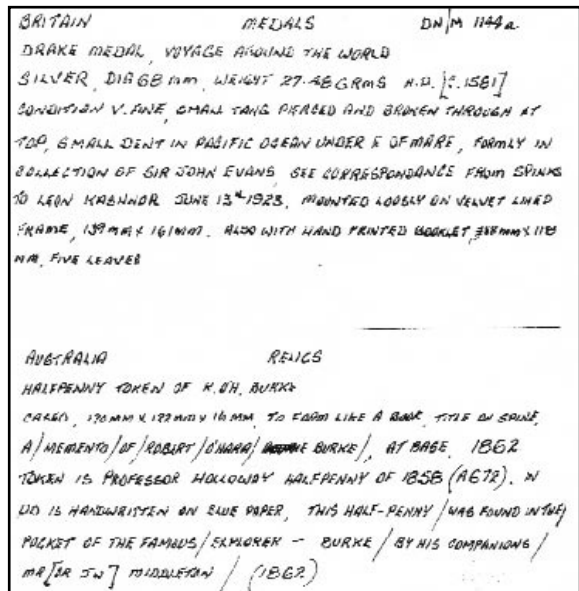 BRITAIN MEDALS DN/M 1144a
DRAKE MEDAL, VOYAGE AROUND THE WORLD
SILVER, DIA 68 MM, WEIGHT 27.48 GRMS N.D. [C.1581]
CONDITION V. FINE, SMALL TANG PIERCED AND BROKEN THROUGH AT
TOP, SMALL DENT IN PACIFIC OCEAN UNDER E OF MARE, FORMLY IN
COLLECTION OF SIR JOHN EVANS SEE CORRESPONDANCE FROM SPINKS
TO LEON KASHNOR JUNE 13th 1923, MOUNTED LOOSLY ON VELVET LINED
FRAME, 139 MM X 161 MM. ALSO WITH HAND PRINTED BOOKLET, X 118
MM, FIVE LEAVES
AUSTRALIA RELICS
HALFPENNY TOKEN OF R. O'H. BURKE
CASED, MM X MM X 16 MM, TO FORM LIKE A BOOK, TITLE ON SPINE,
A/MEMENTO/OF/ROBERT/O'HARA/ BURKE/, AT BASE, 1862
TOKEN IS PROFESSOR HOLLOWAY HALFPENNY OF 1858 (A672). IN
LID IS HANDWRITTEN ON BLUE PAPER, THIS HALF-PENNY/WAS FOUND IN THE/
POCKET OF THE FAMOUS/EXPLORER - BURKE/BY HIS COMPANIONS/
MR [OR JW] MIDDLETON/(1862)